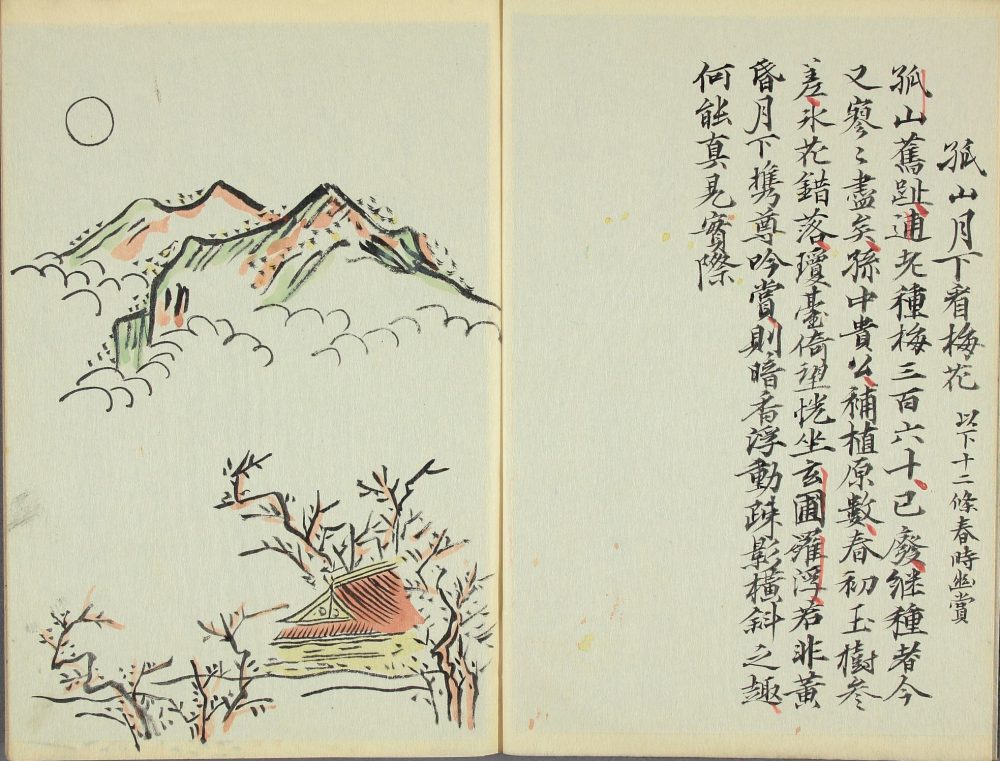 孤山月下看梅花 以下十二條春時幽賞
孤山舊趾逋老種梅三百六十已廢继種者今
又寥〻盡矣孫中貴公補植原數春初玉樹參
差氷花錯落瓊臺倚望恍坐玄圃羅浮若非黃
昏月下携尊吟賞則暗香浮動疎影橫斜之趣
何能真見實際